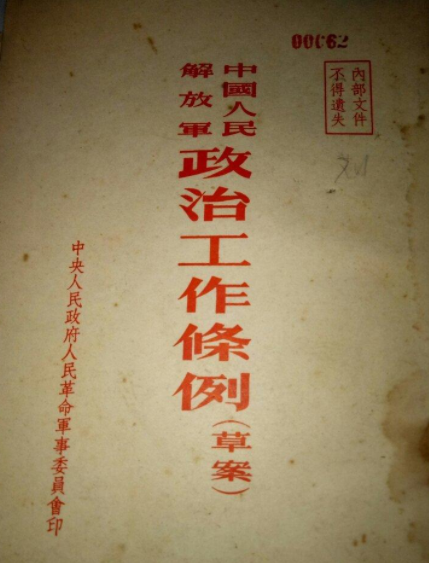 00062
內部文件
不得遺失
中國人民
解放軍
政治工作條例(草案)
中央人民政府人民革命軍事委員會印